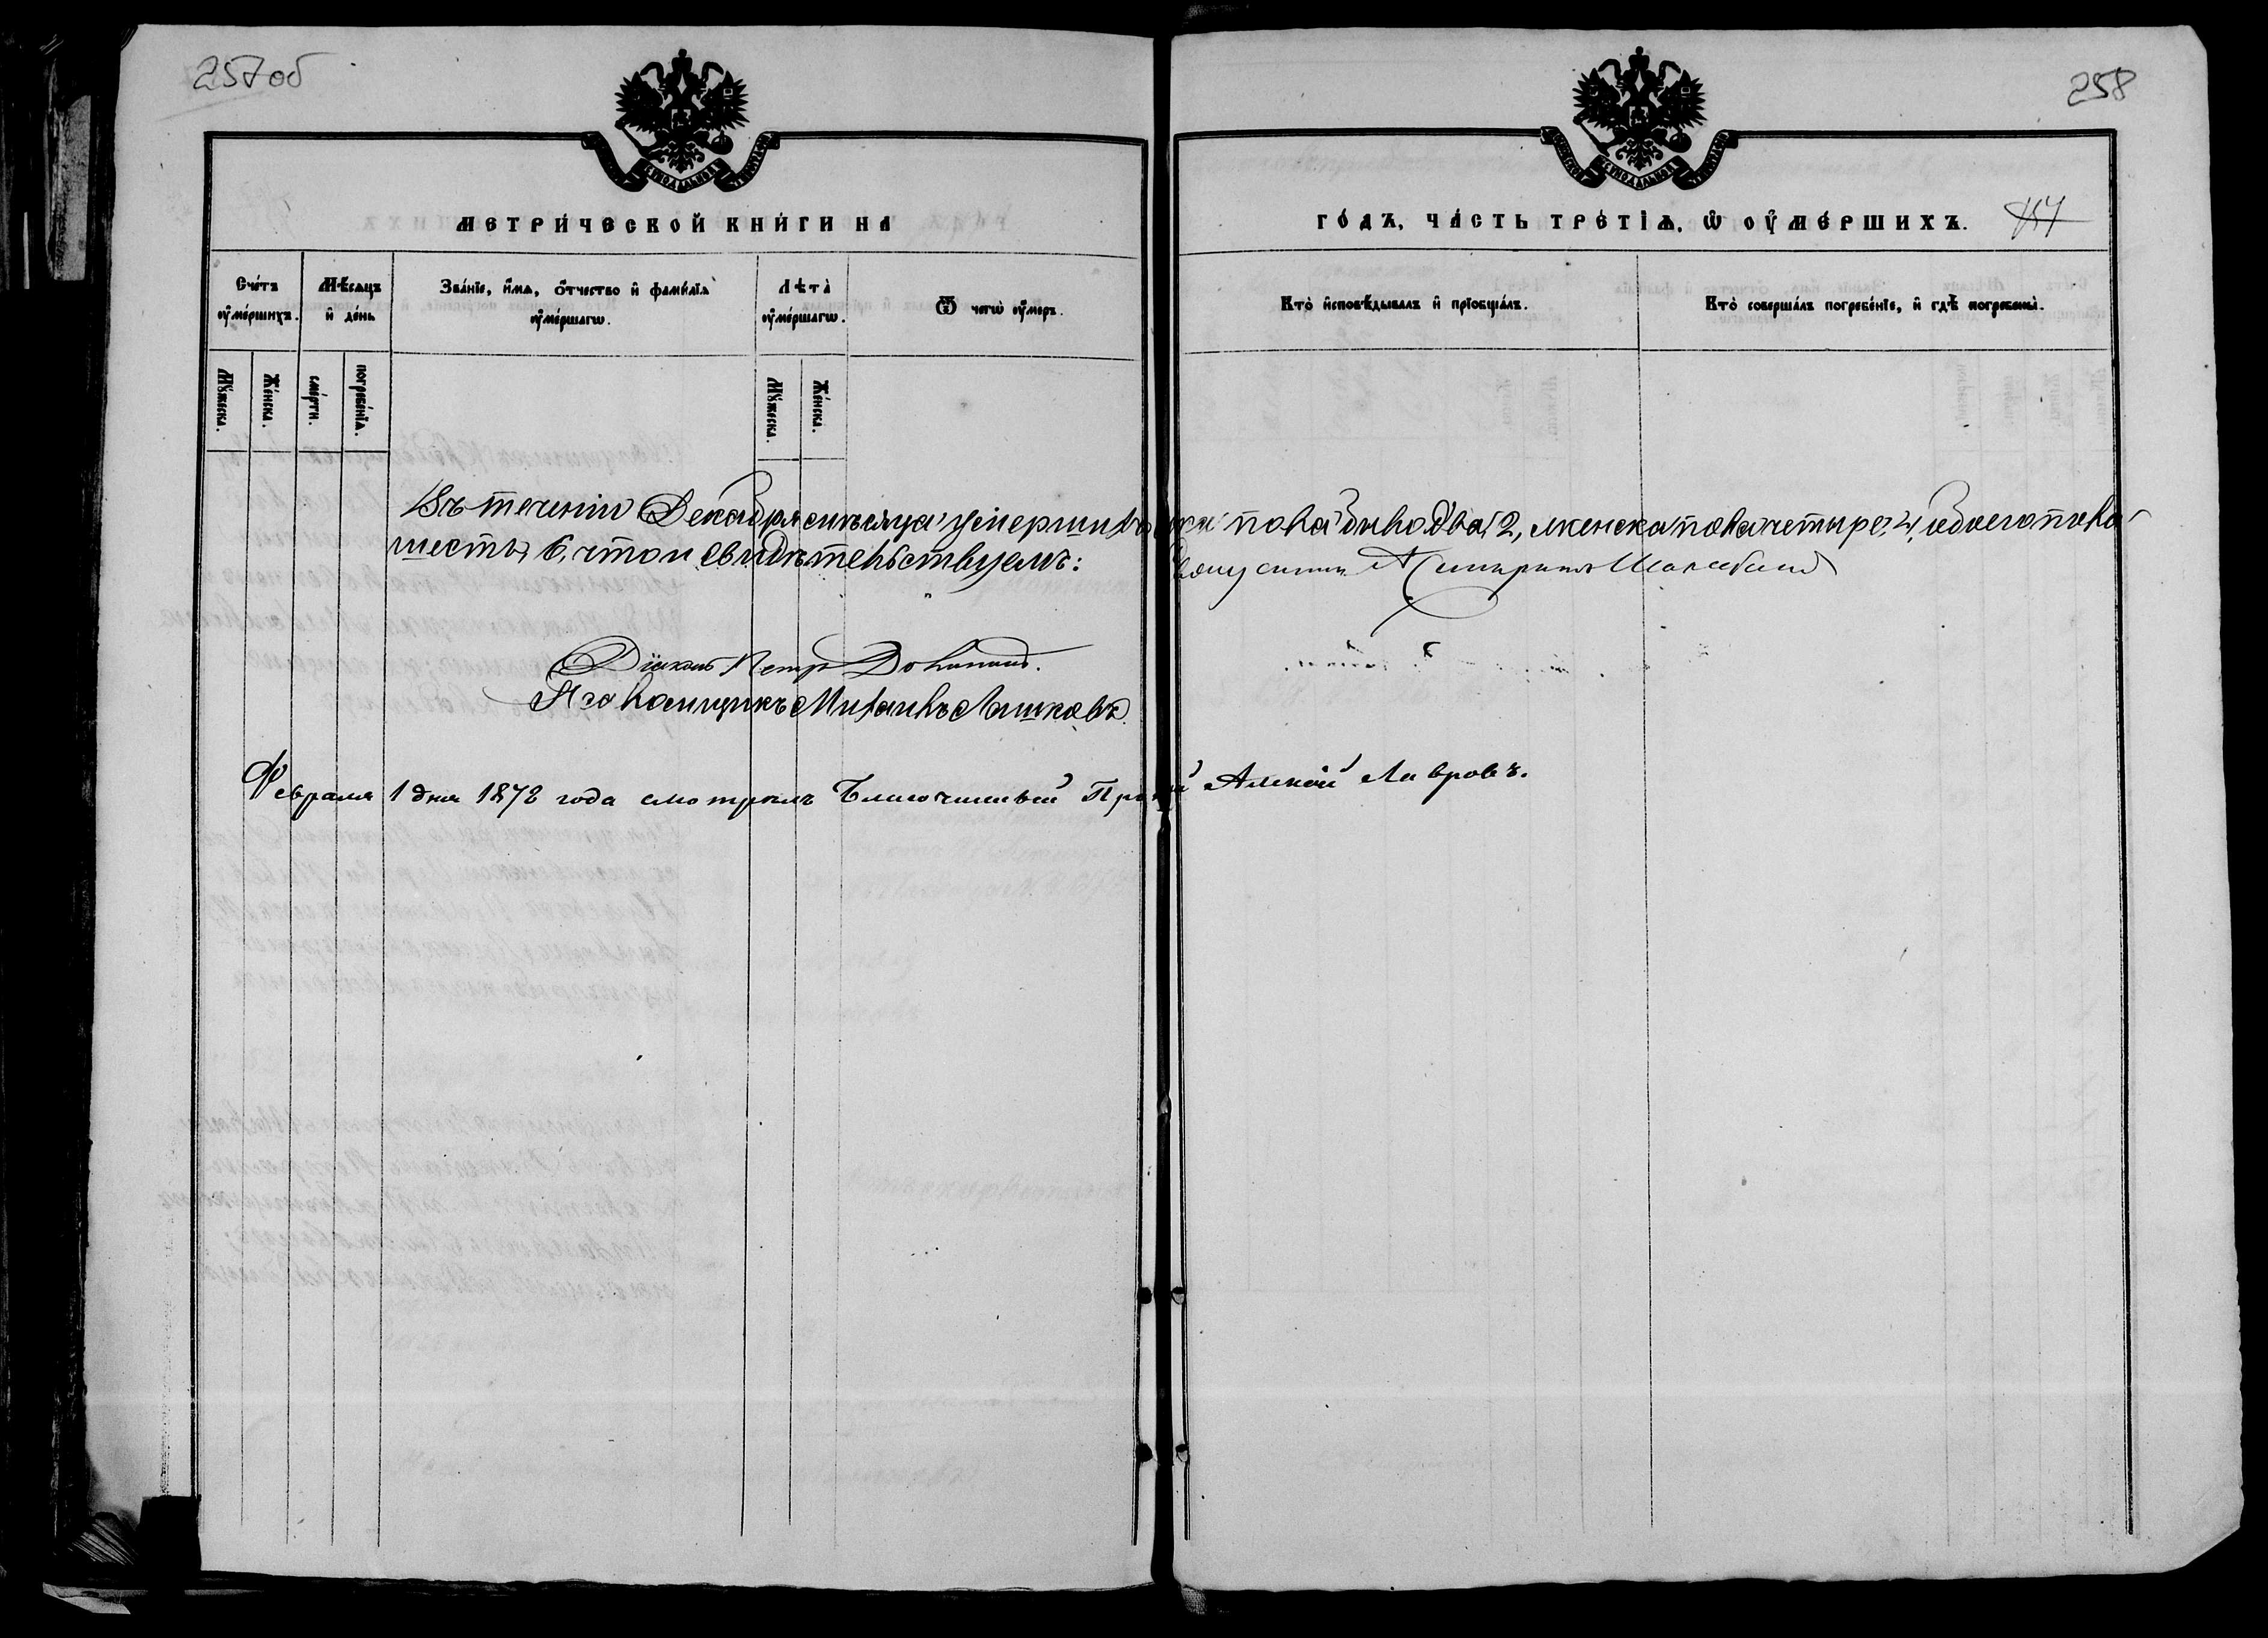 257об
258
МЕТРИ́ЧЕСКОЙ КНИ́ГИ НА
ГО́ДЪ, ЧА́СТЬ ТРЕ́ТІѦ, Ѡ҆ ОУ҆МЕ́РШИХЪ.
157
Сче́тъ оу҆ме́ршихъ.
Мѣ́сѧцъ и҆ де́нь
Зва́нїе, и҆́мѧ, ѻ҆́тчество и҆ фами́лїѧ оу҆ме́ршагѡ.
Лѣ́та̀ оу҆ме́ршагѡ.
Ѿ чегѡ̀ оу҆́меръ.
Кто̀ и҆сповѣ́дывалъ и҆ прїобща́лъ.
Кто̀ соверша́лъ погребе́нїе, и҆ гдѣ̀ погребены̀.
Мꙋ́жеска.
Же́нска.
сме́рти.
погребе́нїѧ.
Мꙋ́жеска.
Же́нска.
Въ теченіи Декабря мѣсяца умершихъ пола было два, 2, женска пола четыре, 4, обоего пола
шесть, 6, что и свидѣтельствуемъ:
Діаконъ Петръ
Псаломщикъ Михаилъ Машковъ.
Февраля 1 дня 1878 года смотрѣлъ Благочинный Алексій Лавровъ.